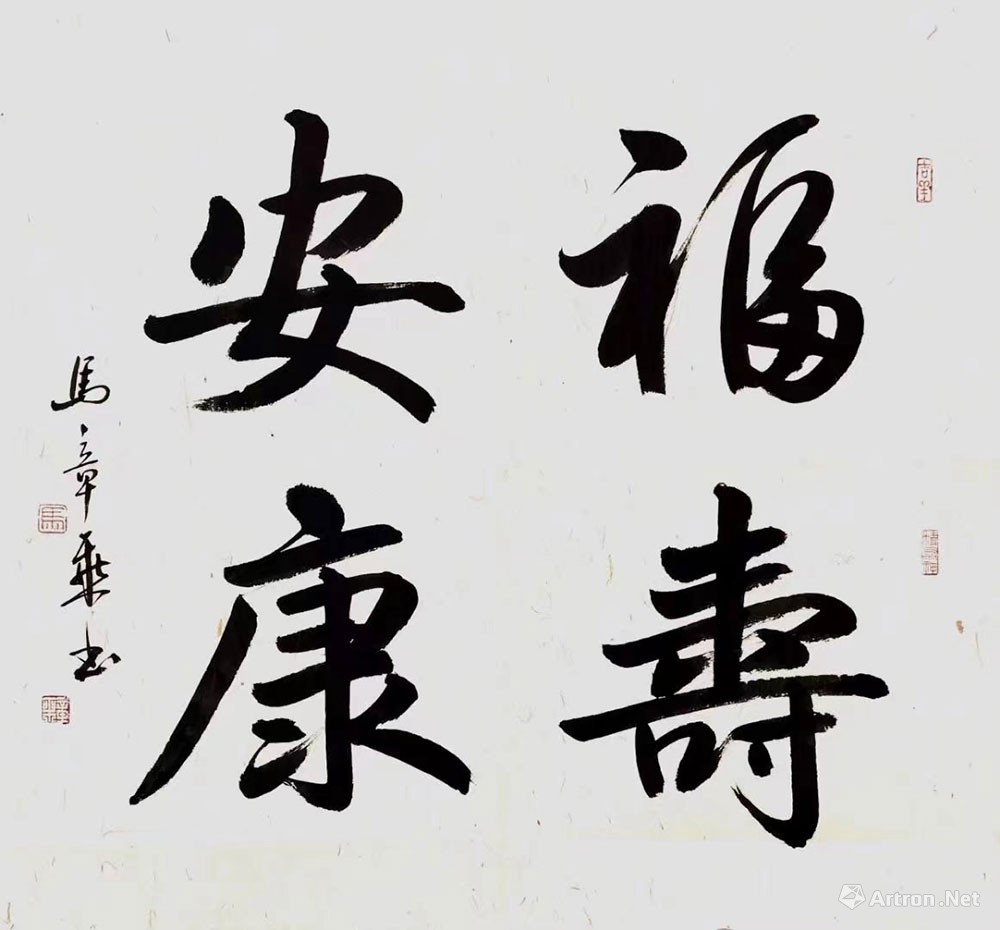 福壽
安康
馬章乘书
Artron.Net